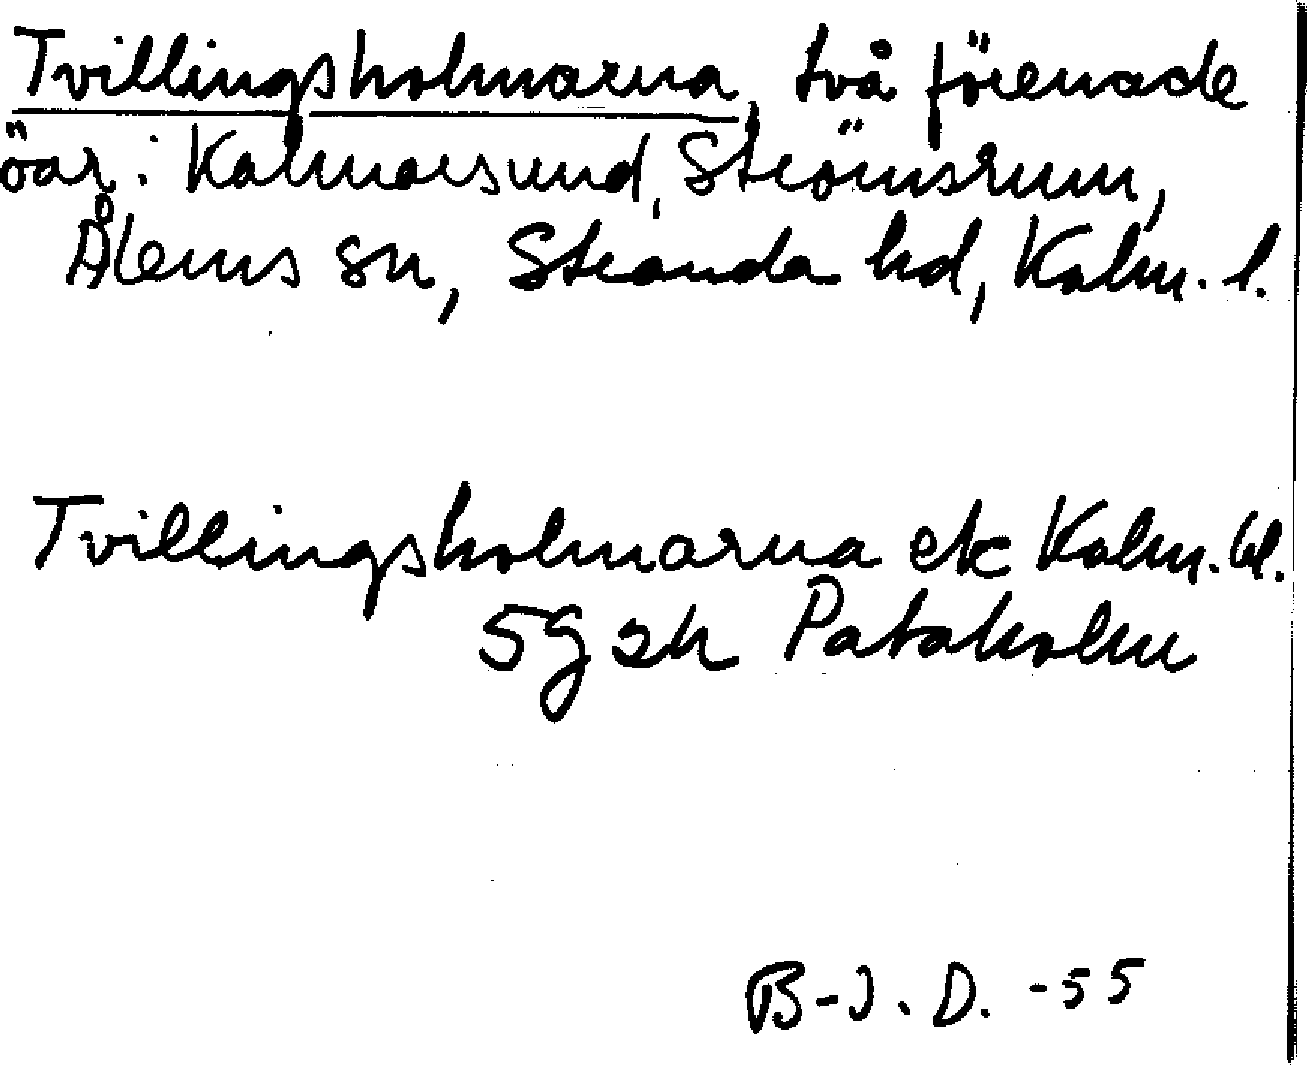 Tvillingsholmarna, två förenade
öar i Kalmarsund, Strömsrum,
Ålems sn, Stranda hd, Kalm. l.
Tvillingsholmarna ek Kalm. bl.
5g sh Pataholm
B-J. D. -55